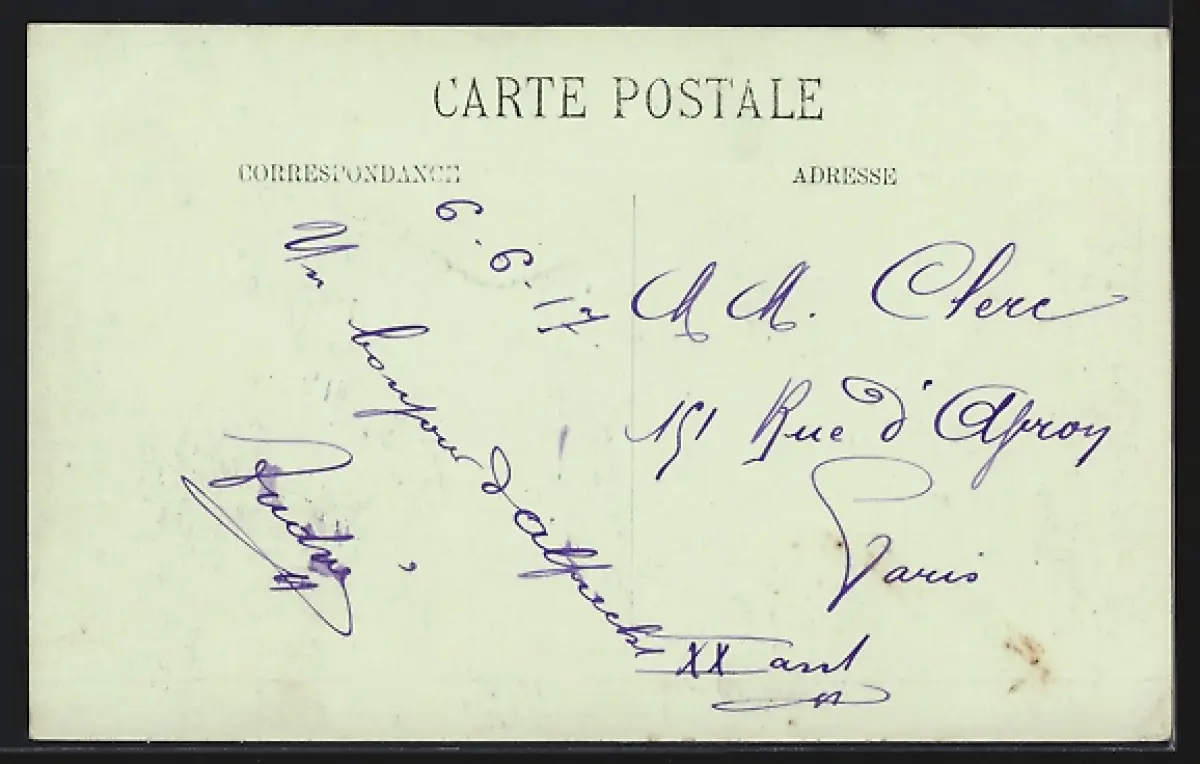 CARTE POSTALE
CORRESPONDANCE
ADRESSE
6.6.17
Un bonjour d'
M M. Clerc
151 Rue d'
Paris
XX